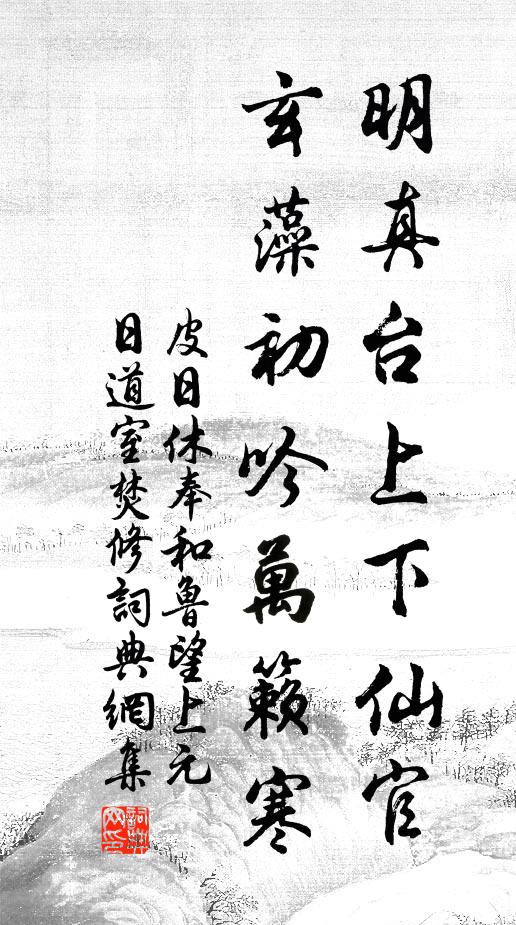 明真台上下仙官
玄藻初吟萬籟寒
皮日休奉和魯望上元
日道室焚修詞典網集